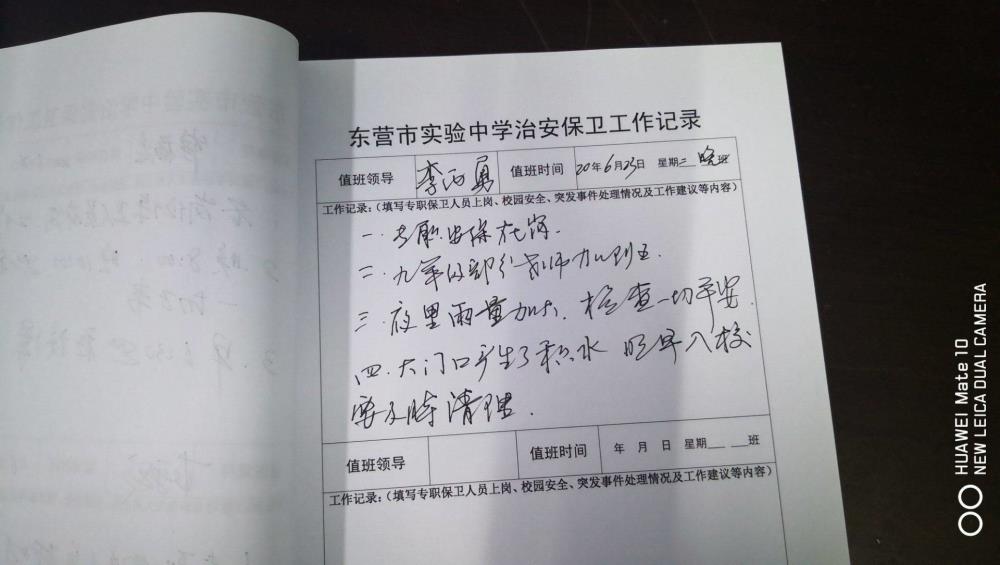 东营市实验中学治安保卫工作记录
值班领导 李 勇 值班时间 20年6月23日 星期二 晚班
工作记录:（填写专职保卫人员上岗、校园安全、突发事件处理情况及工作建议等内容）
一.专职安保在岗.
二.九年级部分教师加班到
三.夜里雨量加大.检查一切平安.
四.大门口产生了积水 明早入校
要及时清理.
值班领导 值班时间 年 月 日 星期___ ___班
工作记录:（填写专职保卫人员上岗、校园安全、突发事件处理情况及工作建议等内容）
HUAWEI Mate 10
NEW LEICA DUAL CAMERA